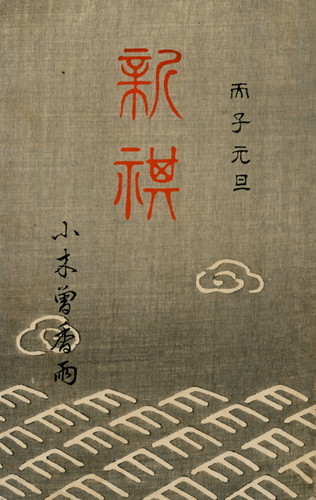 丙子元旦
新祺
小木曾香雨